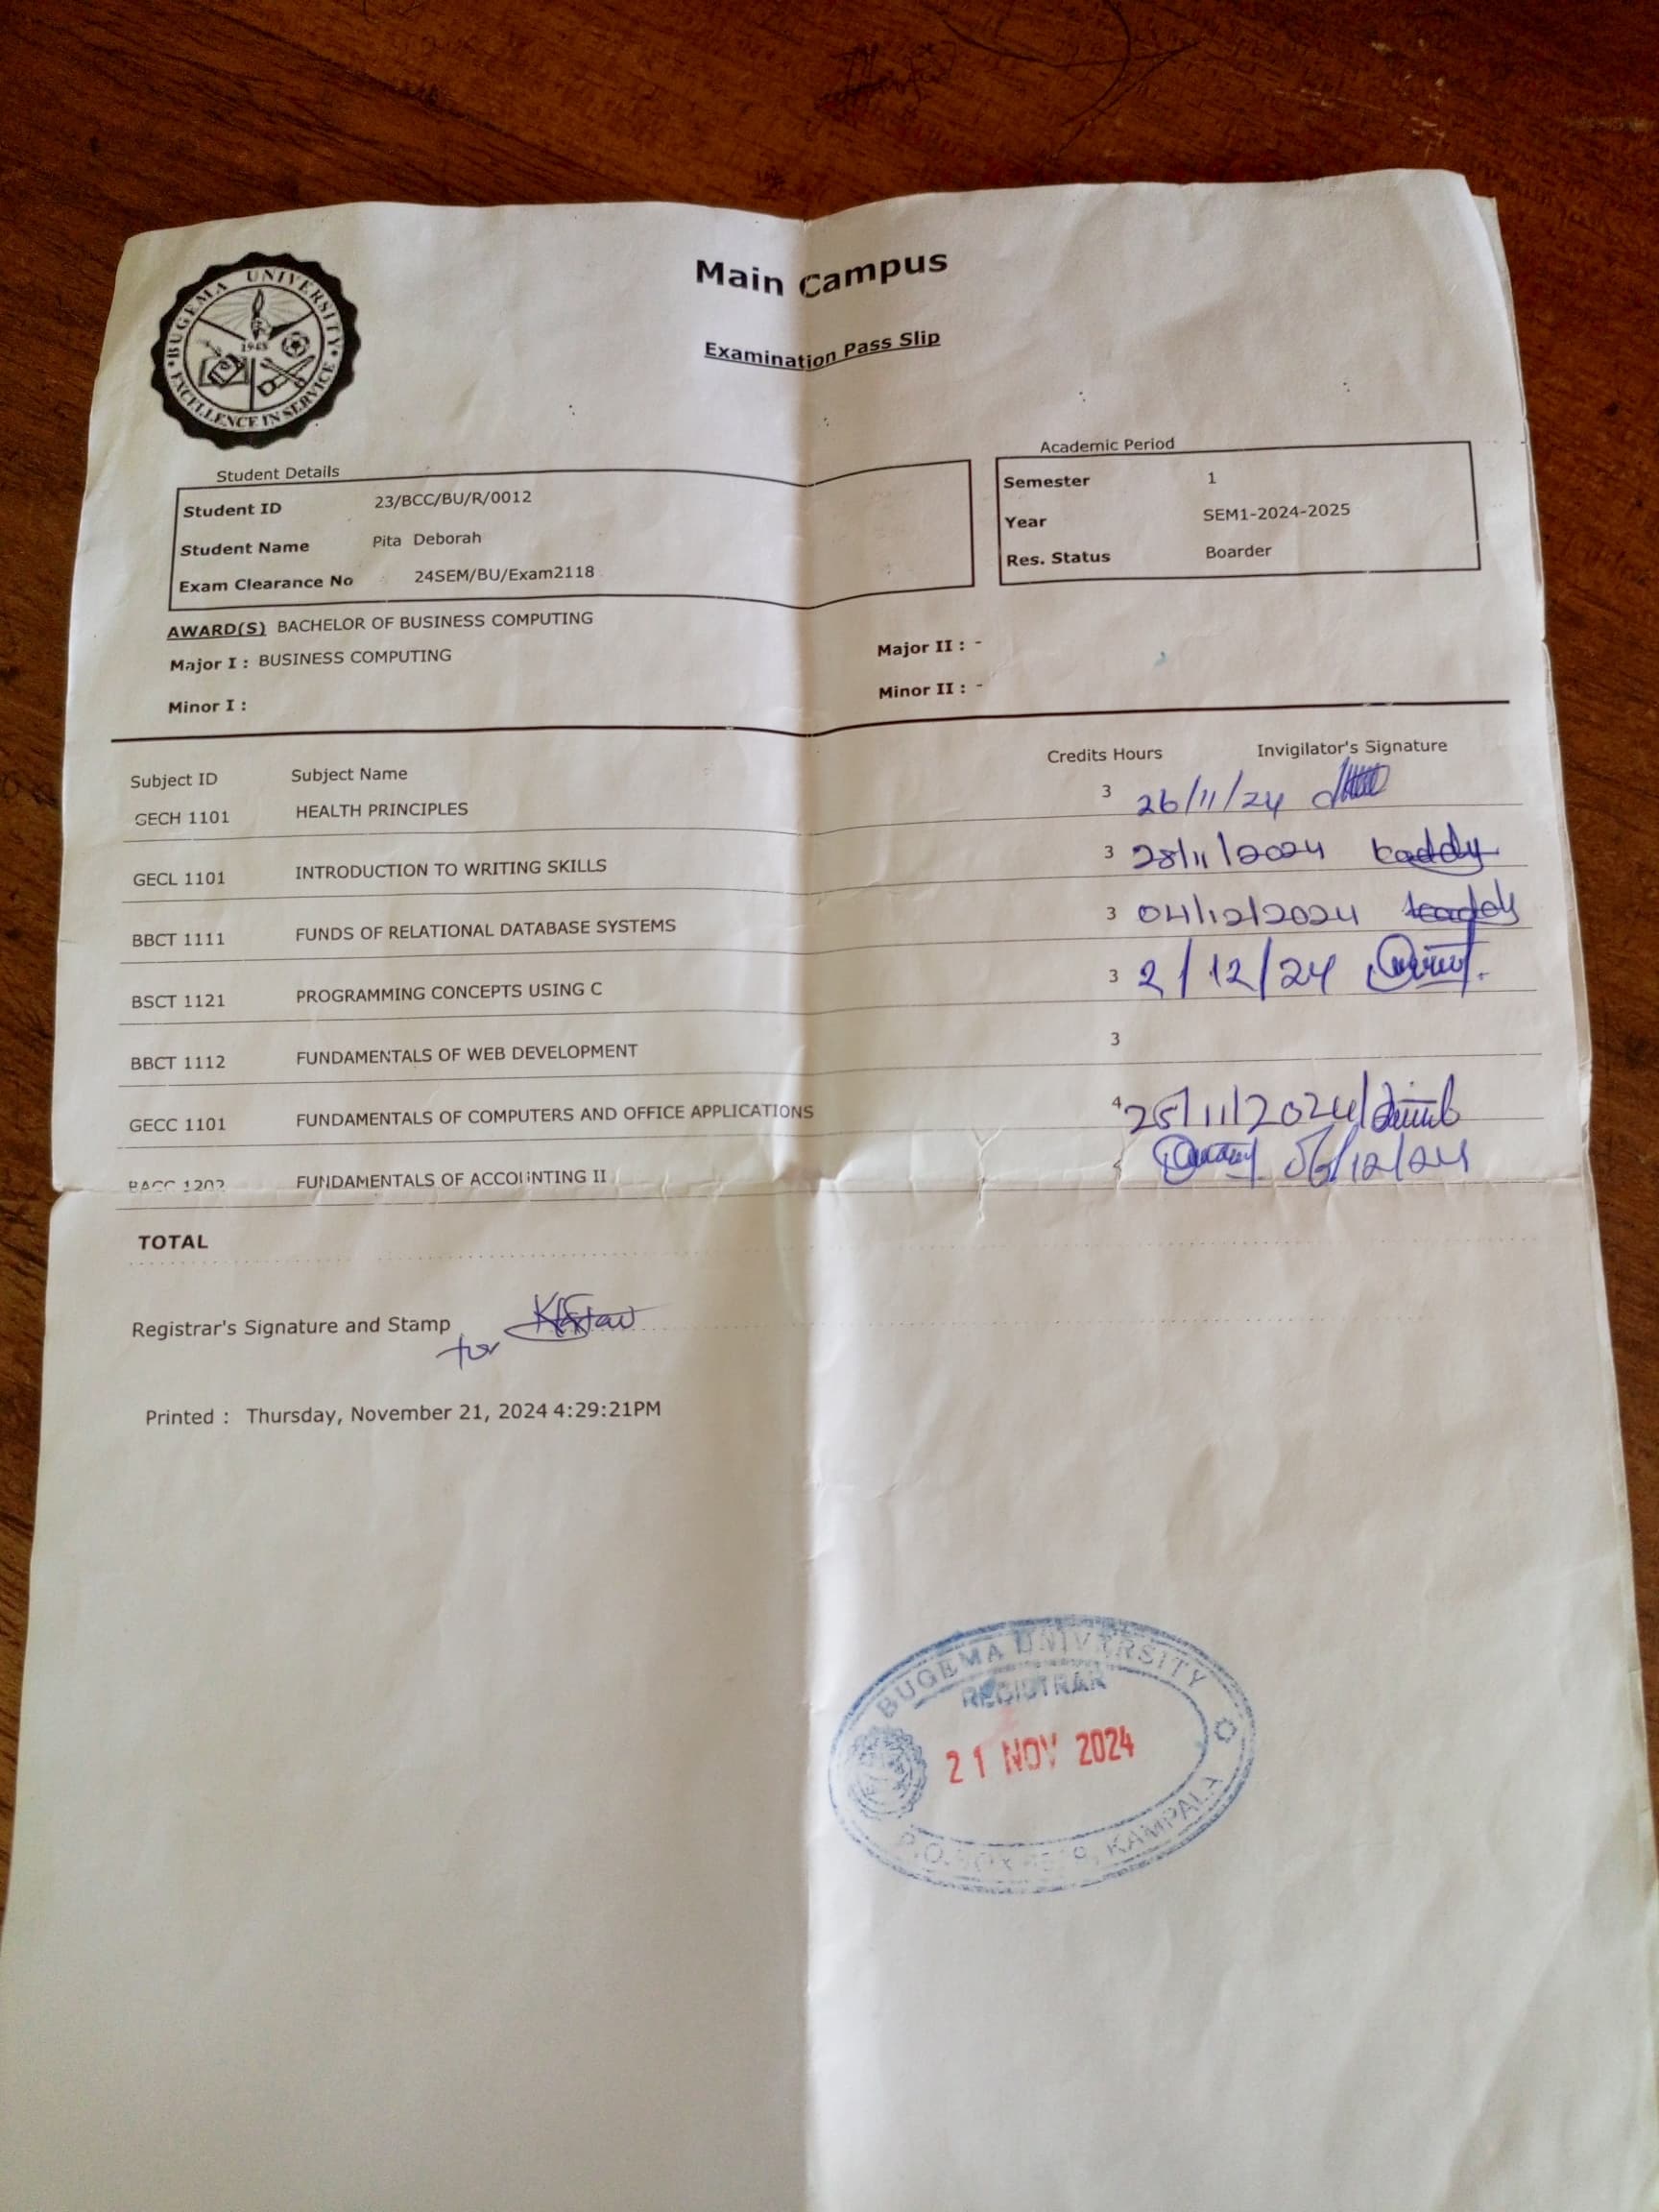 BUGEMA UNIVERSITY
1948
EXCELLENCE IN SERVICE
Main Campus
Examination Pass Slip
Student Details
Student ID 23/BCC/BU/R/0012
Student Name Pita Deborah
Exam Clearance No 24SEM/BU/Exam2118
Academic Period
Semester 1
Year SEM1-2024-2025
Res. Status Boarder
AWARD(S) BACHELOR OF BUSINESS COMPUTING
Major I : BUSINESS COMPUTING Major II : -
Minor I : Minor II : -
Subject ID Subject Name Credits Hours Invigilator's Signature
GECH 1101 HEALTH PRINCIPLES 3 26/11/24
GECL 1101 INTRODUCTION TO WRITING SKILLS 3 28/11/2024 kaddy
BBCT 1111 FUNDS OF RELATIONAL DATABASE SYSTEMS 3 04/12/2024
BSCT 1121 PROGRAMMING CONCEPTS USING C 3 2/12/24
BBCT 1112 FUNDAMENTALS OF WEB DEVELOPMENT 3
GECC 1101 FUNDAMENTALS OF COMPUTERS AND OFFICE APPLICATIONS 4 25/11/2024/
BACC 1202 FUNDAMENTALS OF ACCOUNTING II 06/12/24
TOTAL
Registrar's Signature and Stamp
for
Printed : Thursday, November 21, 2024 4:29:21PM
BUGEMA UNIVERSITY
REGISTRAR
21 NOV 2024
P.O. BOX KAMPALA